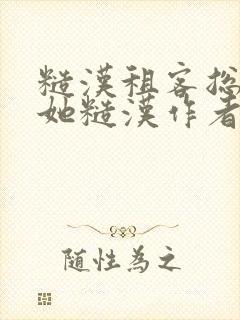 糙漢租客總
她糙漢作者
隨性為之